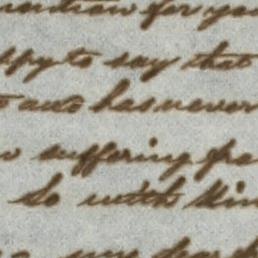 for you
ppy to say that
has never
suffering fro
So with Kin
my dear